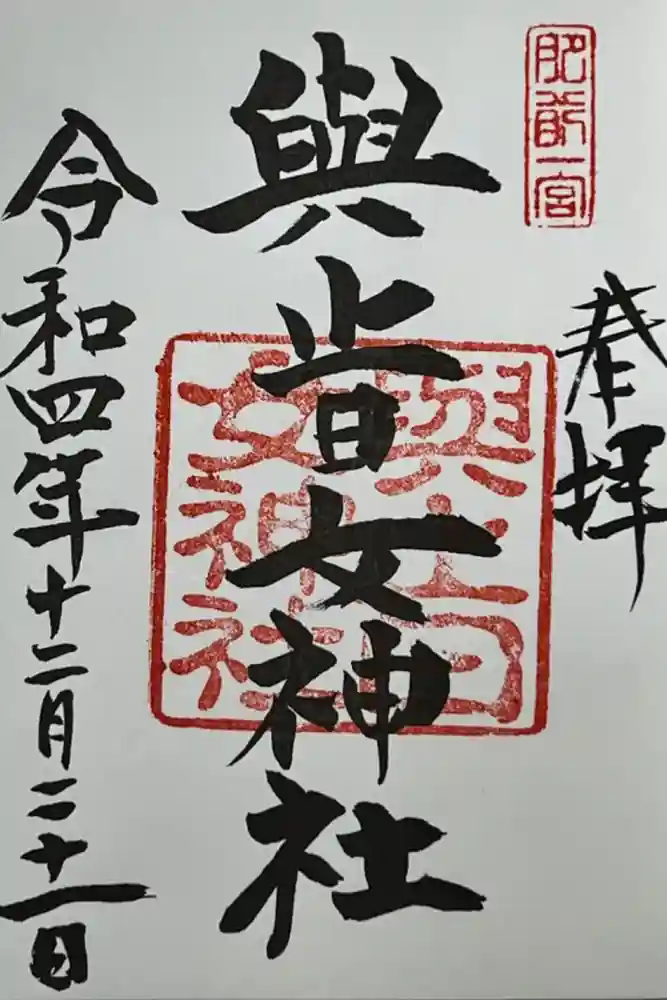 肥前一宮
奉拝
與止日女神社
與止日
女神社
令和四年十二月二十一日